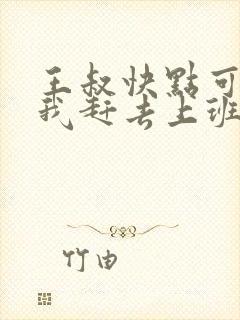 王叔快點可
我赶去上班
竹由